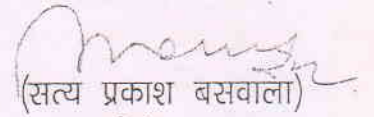 (सत्य प्रकाश बसवाला)